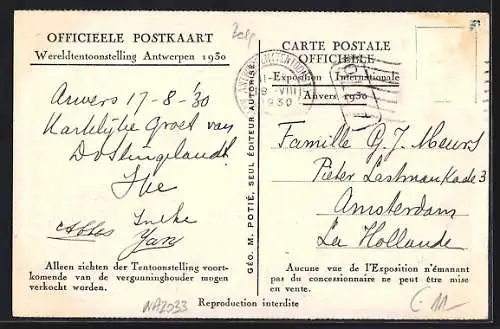 Belg
OFFICIEELE POSTKAART
Wereldtentoonstelling Antwerpen 1930
Anvers 17-8-'30
Hartelijke Groet van
Ine
Ineke
Jan
Alleen zichten der Tentoonstelling voort-
komende van de vergunninghouder mogen
verkocht worden.
NA2033
GÉO. M. POTIÉ, SEUL ÉDITEUR AUTORISÉ.
CARTE POSTALE
OFFICIELLE
Exposition Internationale
Anvers 1930
VIII
1930
Famille G. J. Meurs
Pieter Lastmankade 3
Amsterdam
La Hollande
Aucune vue de l'Exposition n'émanant
pas du concessionnaire ne peut être mise
en vente.
Reproduction interdite